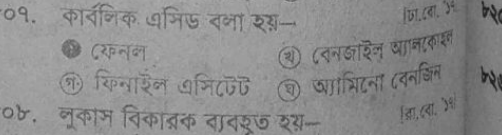 ০৭. কার্বলিক এসিড বলা হয়— [ঢা.বো. ১৭
ফেনল (খ) বেনজাইল অ্যালকোহল
(গ) ফিনাইল এসিটেট (ঘ) অ্যামিনো বেনজিন
০৮. লুকাস বিকারক ব্যবহৃত হয়— [রা.বো. ১৭